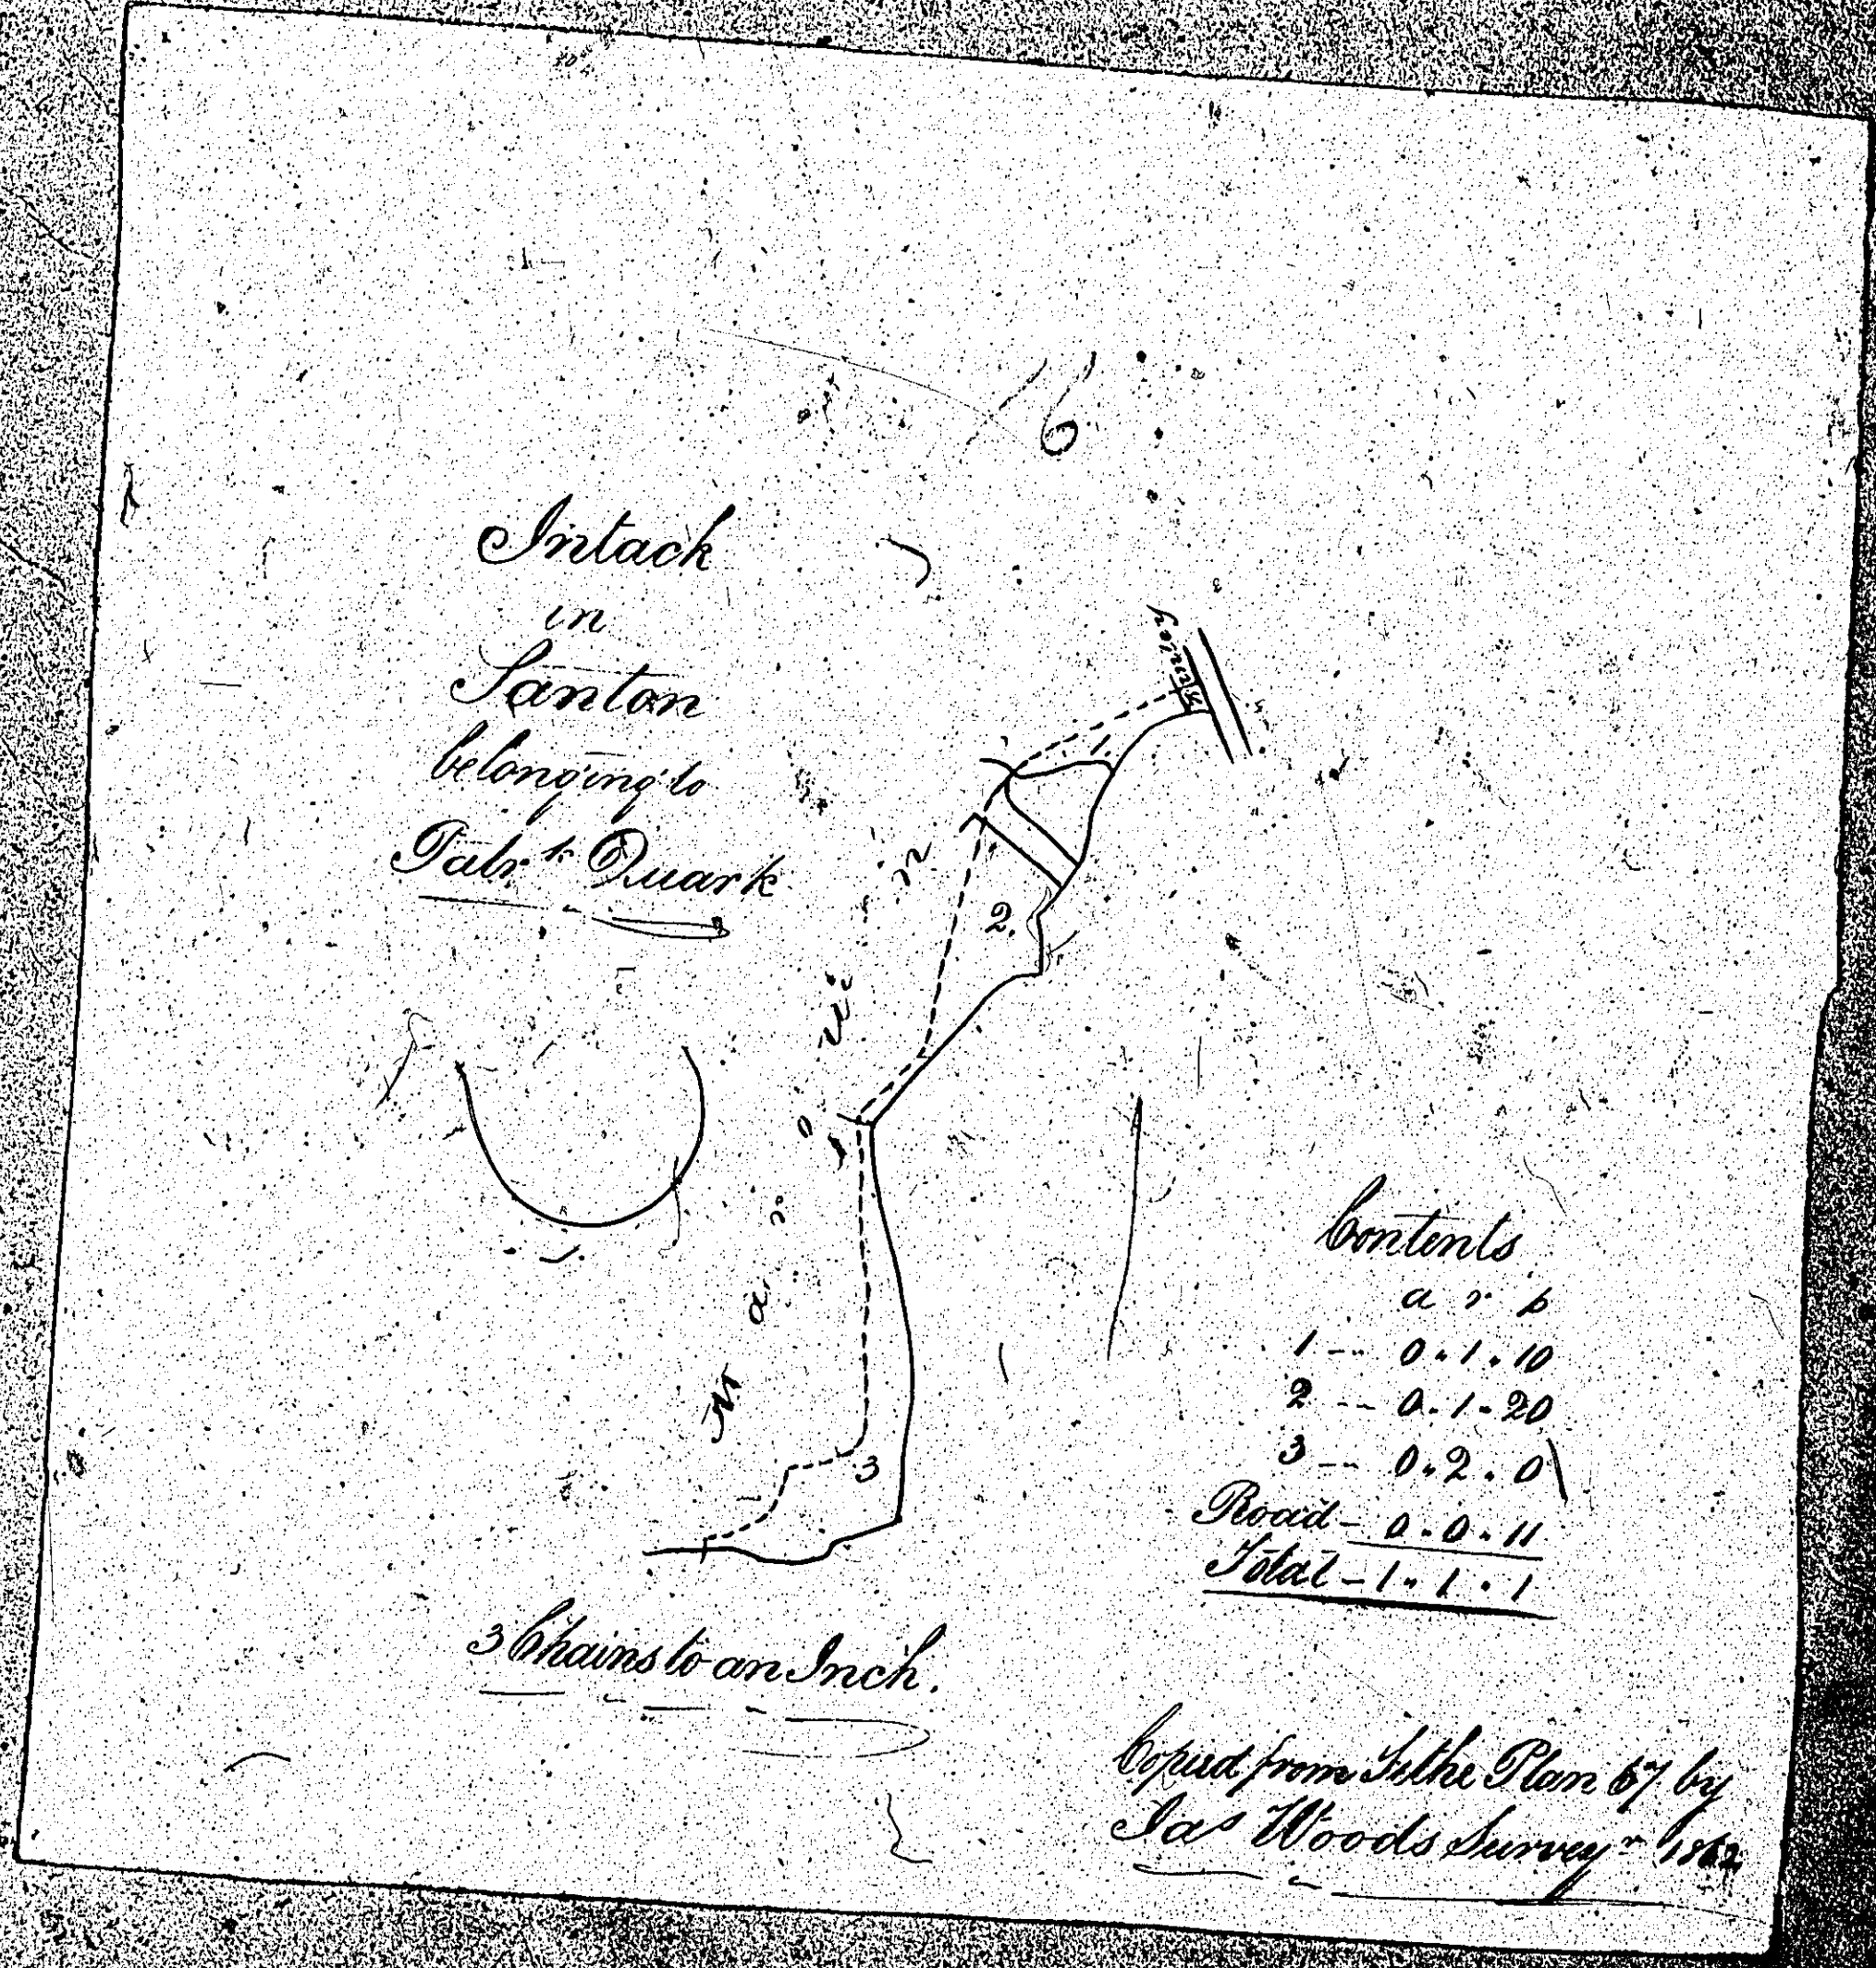 16
Intack
in
Santon
belonging to
Patrk Quark
Bridge
1.
2.
3
Contents
a r p
1 -- 0.1.10
2 -- 0.1.20
3 -- 0.2.0
Road - 0.0.11
Total - 1.1.1
3 Chains to an Inch.
Copied from Tithe Plan 67 by
Jas Woods Surveyr 1862